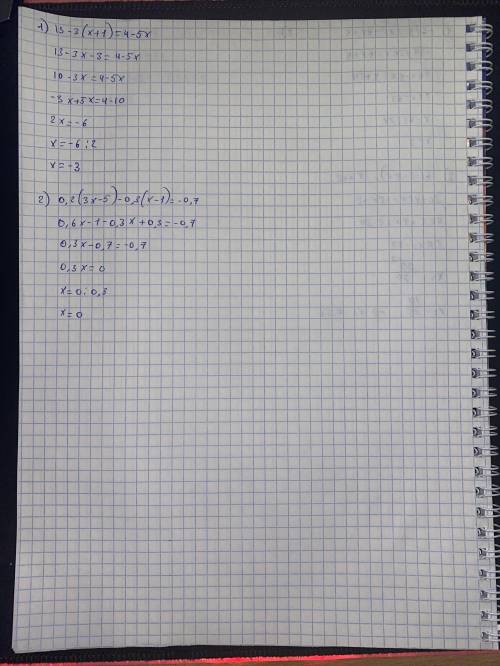 1) 13-3(x+1)=4-5x
13-3x-3=4-5x
10-3x=4-5x
-3x+5x=4-10
2x=-6
x=-6:2
x=-3
2) 0,2(3x-5)-0,3(x-1)=-0,7
0,6x-1-0,3x+0,3=-0,7
0,3x-0,7=-0,7
0,3x=0
x=0:0,3
x=0